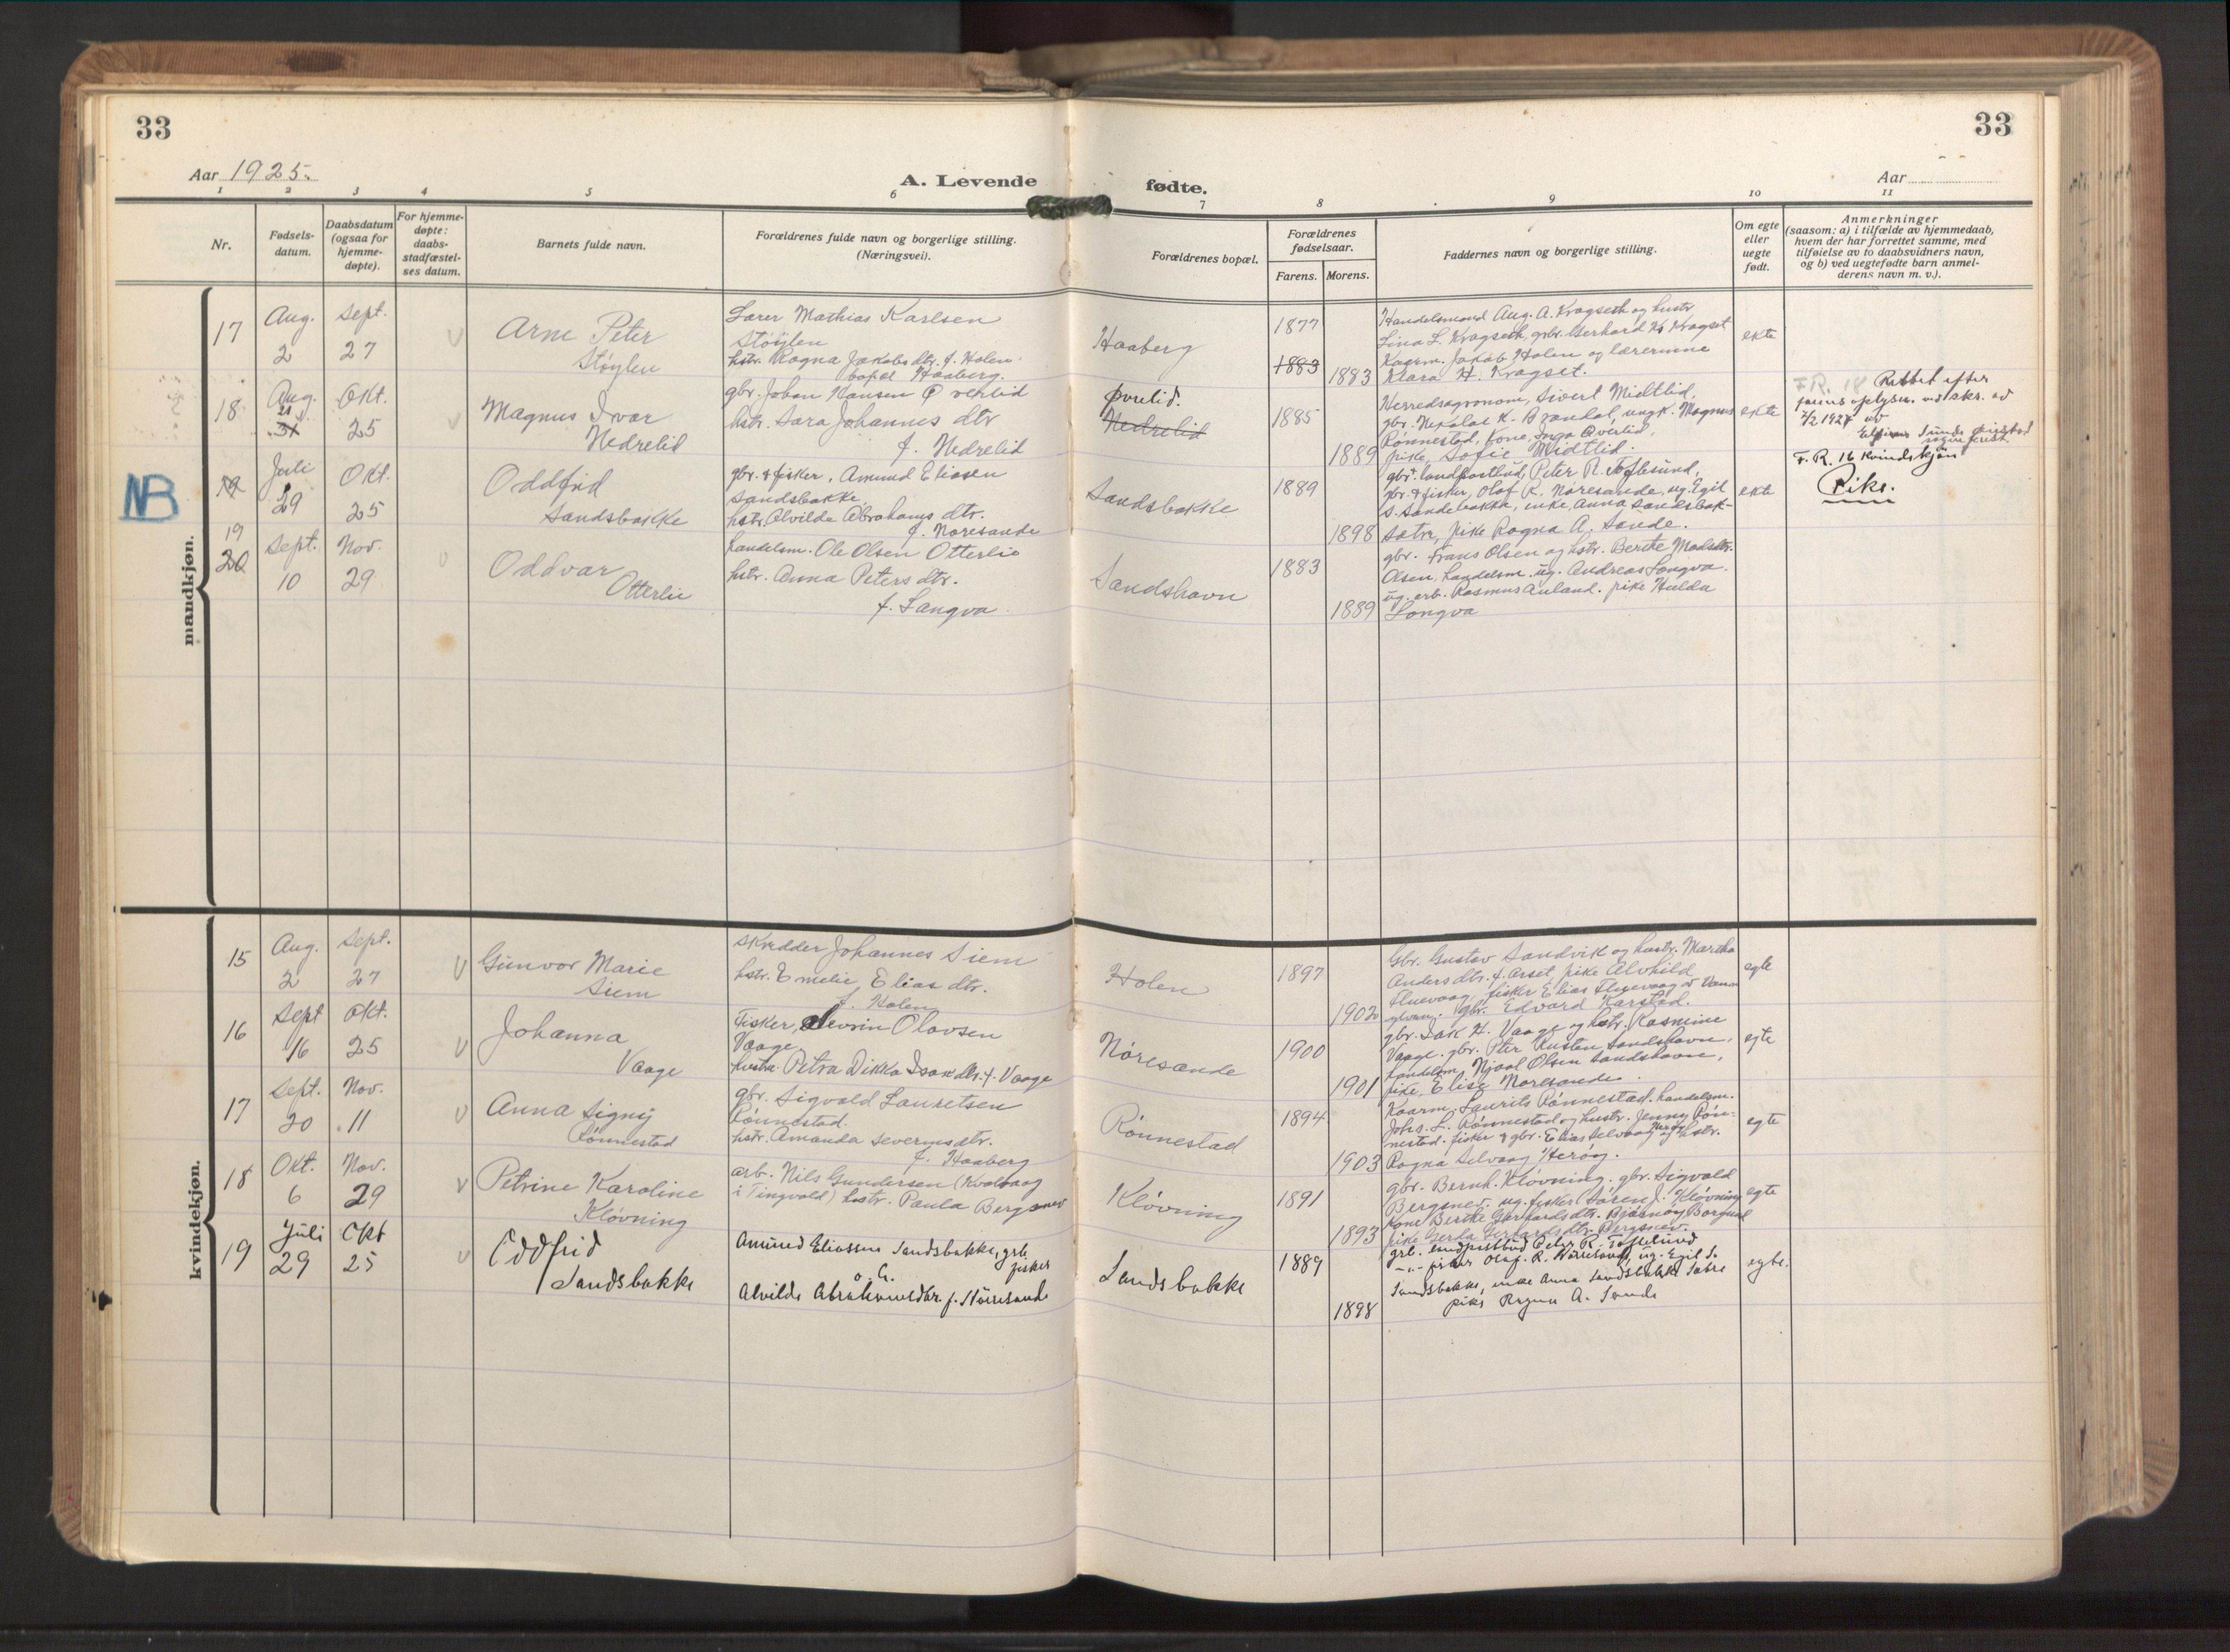 33
33
Aar 1925.
A. Levende
fødte.
Aar
1
2
3
4
5
6
7
8
9
10
11
Nr.
Fødsels-
datum.
Daabsdatum
(ogsaa for
hjemme-
døpte).
For hjemme-
døpte:
daabs-
stadfæstel-
ses datum.
Barnets fulde navn.
Forældrenes fulde navn og borgerlige stilling.
(Næringsvei).
Forældrenes bopæl.
Forældrenes
fødselsaar.
Farens.
Morens.
Faddernes navn og borgerlige stilling.
Om egte
eller
uegte
født.
Anmerkninger
(saasom: a) i tilfælde av hjemmedaab,
hvem der har forrettet samme, med
tilføielse av to daabsvidners navn,
og b) ved uegtefødte barn anmel-
derens navn m. v.).
mandkjøn.
17
Aug.
2
Sept.
27
Arne Peter
Støylen
Lærer Mathias Karlsen
Støylen
hstr. Ragna Jakobsdtr. f. Holen
bopæl Haaberg.
Haaberg
1877
1883
1883
Handelsmand Aug. A. Kragseth og hustr
Lina L. Kragseth, gbr. Gerhard K. Kragset
Kaarm. Jakob Holen og lærerinne
Klara H. Kragset.
ekte
18
Aug.
21
31
Okt.
25
Magnus Ivar
Nedrelid
gbr. Johan Hansen Øverlid
hstr. Sara Johannes dtr
f. Nedrelid
Øvrelid.
Nedrelid
1885
1889
Herredsagronom, Sivert Midtlid,
gbr. Nikolai K. Brandal, ungk. Magnus
Rønnestad, kone, Inga Øverlid,
pike, Sofie Midtlid.
ekte
F. R. 18 Rettet efter
farens oplysn. ved skr. av
7/2 1927
NB
19
19
Juli
29
Okt.
25
Oddfrid
Sandsbakke
gbr. & fisker, Amund Eliasen
Sandsbakke,
hstr. Alvilde Abrahams dtr.
f. Nøresande
Sandsbakke
1889
1898
gbr. & landpostbud, Peter R. Toftesund,
gbr. & fisker, Olaf R. Nøresande, ug. Egil
S. Sandsbakke, enke, Anna Sandsbak-
Sætre, pike Ragna A. Sande.
ekte
F. R. 16 Kvindekjøn
Pike.
20
Sept.
10
Nov.
29
Oddvar
Otterlei
handelsm. Ole Olsen Otterlei
hstr. Anna Peters dtr.
f. Langva
Sandshavn
1883
1889
gbr. Frans Olsen og hstr. Berthe Madsdtr.
Olsen, handelsm. ug. Andreas Longva.
ug. arb. Rasmus Auland. pike Hulda
Longva
kvindekjøn.
15
Aug.
2
Sept.
27
Gunvor Marie
Siem
Skrædder Johannes Siem
hstr. Emelie Elias dtr.
f. Holen
Holen
1897
1902
Gbr. Gustav Sandvik og hustr. Martha
Andersdtr. f. Aarset, pike Alvhild
gbr. Edvard Karstad.
egte
16
Sept
16
Okt.
25
Johanna
Vaage
Fisker, Severin Olavsen
Vaage
hustru Petra Dikka Isak dtr. f. Vaage
Nøresande
1900
1901
gbr. Isak H. Vaage og hstr. Rasmine
Vaage. gbr. Peter Rusten Sandshavn,
handelsm. Njaal Olsen Sandshavn,
pike, Elise Nøresande.
egte
17
Sept.
20
Nov.
11
Anna Signy
Rønnestad
gbr. Sigvald Lauretsen
Rønnestad.
hstr. Amanda Severinsdtr.
f. Haaberg
Rønnestad
1894
1903
Kaarm. Laurits Rønnestad. handelsm.
Johs. L. Rønnestad og hustr. Jenny Røn-
nestad. fisker & gbr. Elias Selvaag og hstr.
Ragna Selvaag Herøy.
egte
18
Okt.
6
Nov.
29
Petrine Karoline
Kløvning
arb. Nils Gundersen (Kvalvaag
i Tingvold) hustr. Paula Bergsnev
Kløvning
1891
1893
gbr. Bernh. Kløvning. gbr. Sigvald
Bergsnev. ug. fisker Søren J. Kløvning
kone Berthe Gerhardsdtr. Bjørnøy Borgund
pike Gerda Gerhardsdtr. Bergsnev.
egte
19
Juli
29
Okt
25
Oddfrid
Sandsbakke
Amund Eliassen Sandsbakke, grb.
fisker
o. h.
Alvilde Abrahamsdtr. f. Nøresande
Sandsbakke
1889
1898
grb. landpostbud Peter R. Toftesund
-"- fisker Olaf. R. Nøresande, ug. Egil S.
Sandsbakke, enke Anna Sandsbakk Sætre
pike Ragna A. Sande
egte.